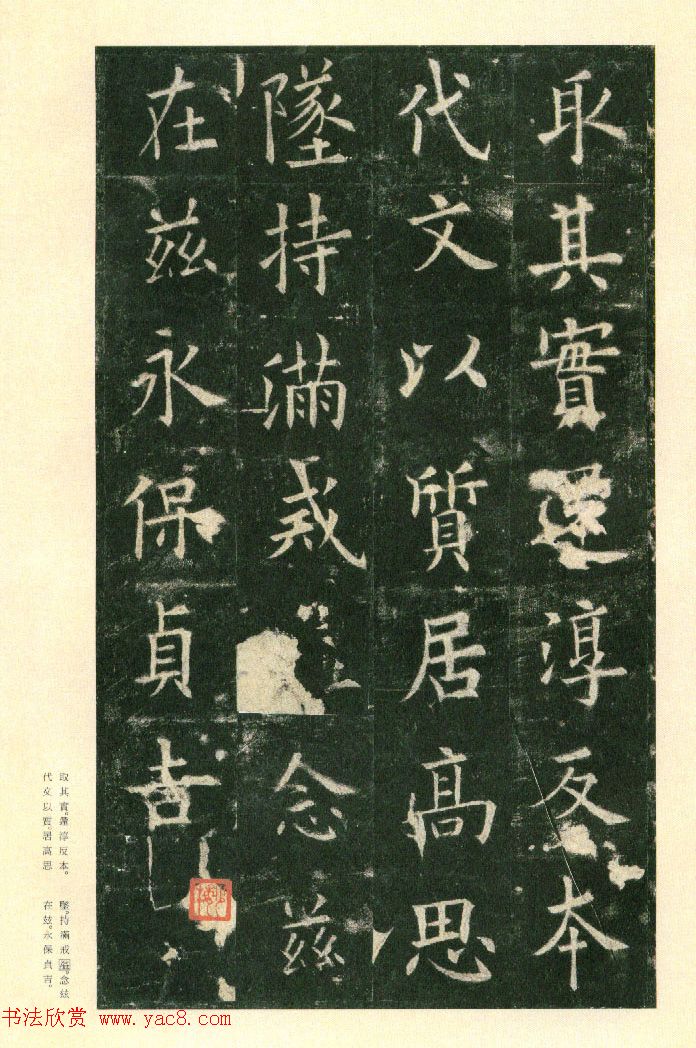 取其實還淳反本
代文以質居高思
墜持滿戒念茲
在茲永保貞吉
取其實還淳反本。
代文以質居高思
墜。持滿戒溢。念茲
在茲。永保貞吉。
书法欣赏 www.yac8.com